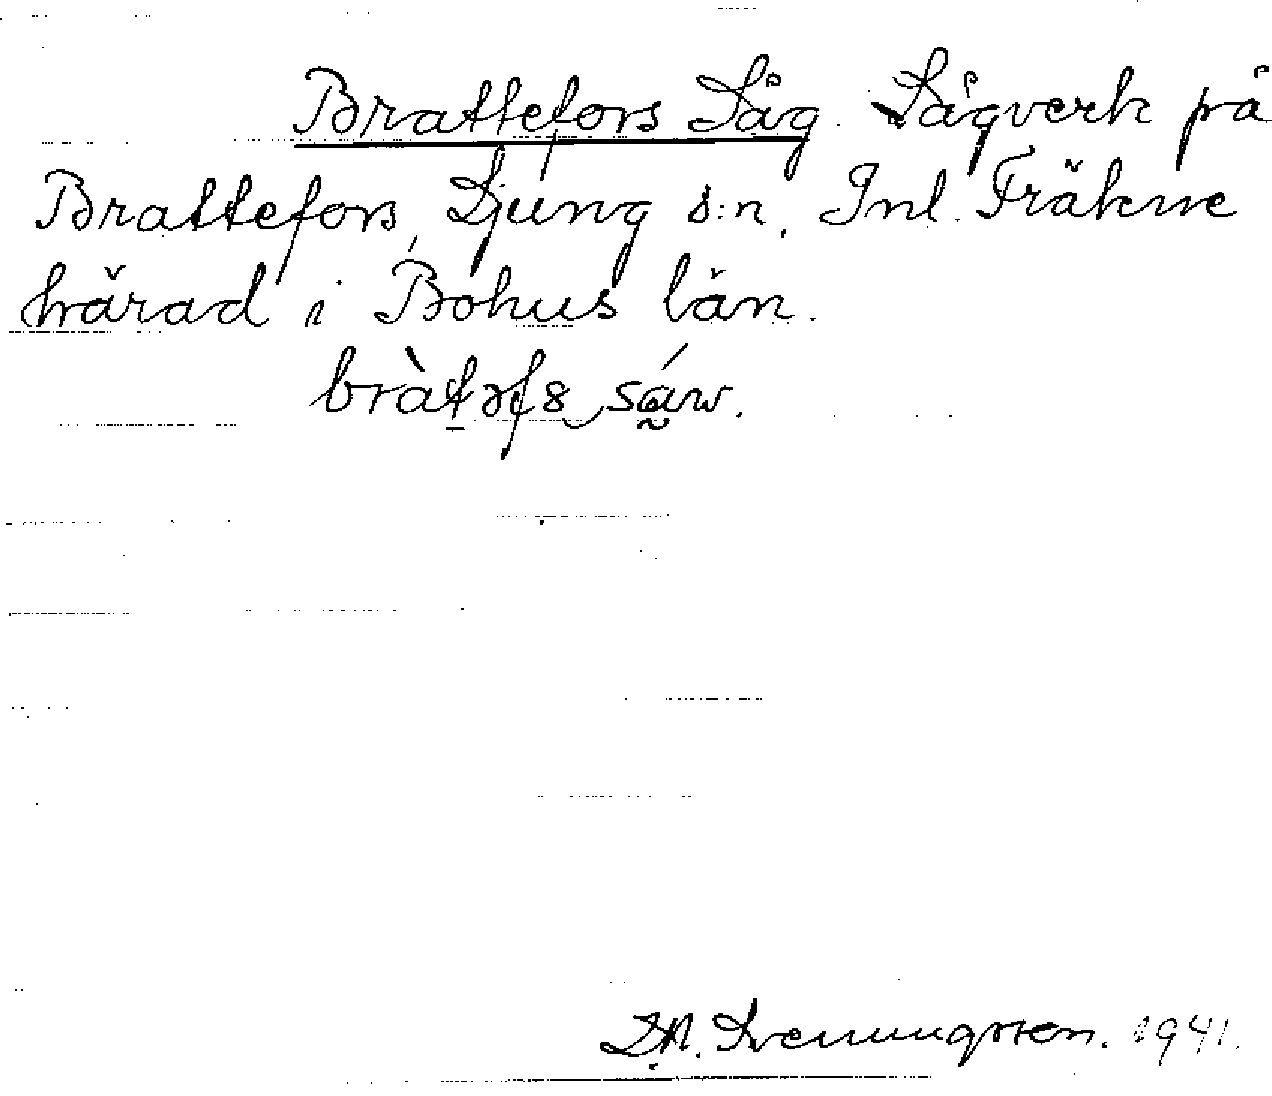 Brattefors Såg. Sågverk på
Brattefors, Ljung s:n, Inl. Fräkne
härad i Bohus län.
bràtəfs sáw.
Svenungsson. 1941.